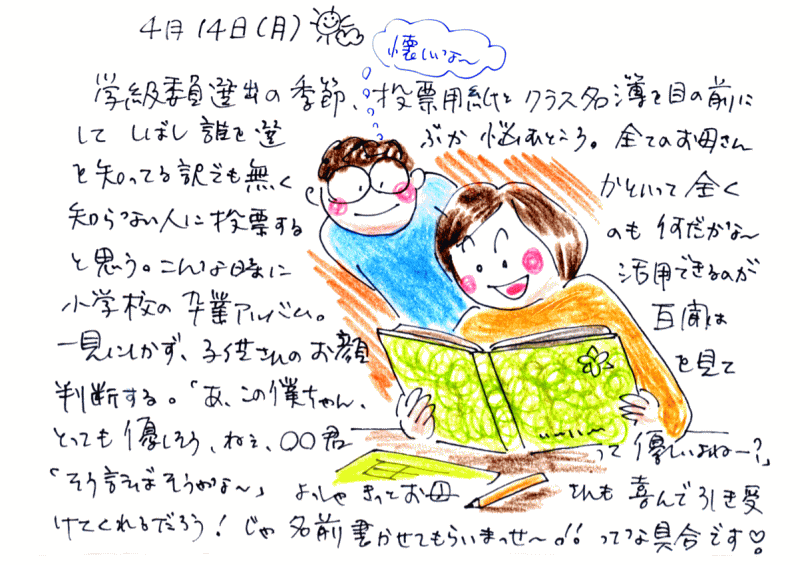 4月14日(月)
懐しいな〜
学級委員選出の季節、投票用紙とクラス名簿を目の前に
して しばし 誰を選 ぶか 悩むところ。全てのお母さん
を知ってる訳でも無く かといって 全く
知らない人に投票する のも 何だかな〜
と思う。こんな時に 活用できるのが
小学校の 卒業アルバム。 百聞は
一見にしかず、子供さんのお顔 を見て
判断する。「あ、この僕ちゃん、
とっても 優しそう、ねぇ、〇〇君 って 優しいよねー?」
「そう言えばそうかな〜」 よっしゃ きっとお母 さんも 喜んで引き受
けてくれるだろう! じゃ 名前 書かせてもらいまっせ〜!! ってな具合です♡